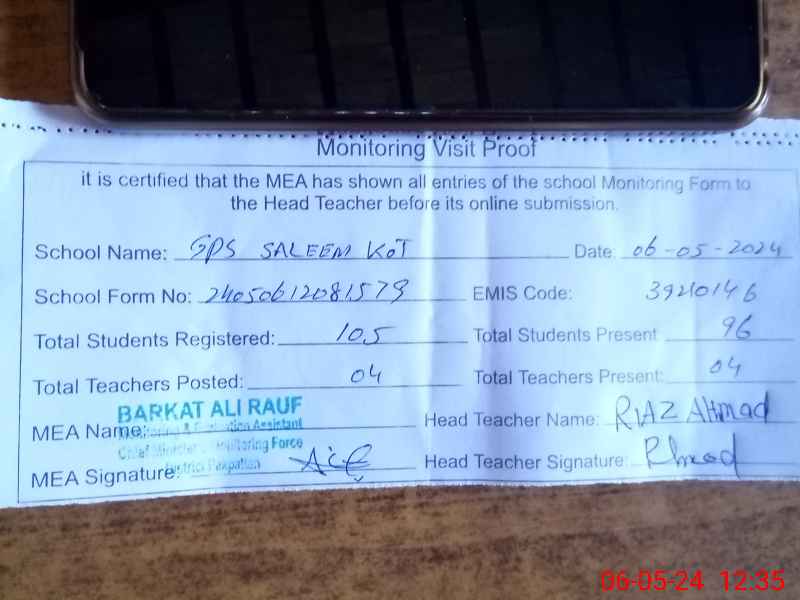 Monitoring Visit Proof
it is certified that the MEA has shown all entries of the school Monitoring Form to
the Head Teacher before its online submission.
School Name: GPS SALEEM KOT Date: 06-05-2024
School Form No: 24050612081579 EMIS Code: 39210146
Total Students Registered: 105 Total Students Present 96
Total Teachers Posted: 04 Total Teachers Present: 04
BARKAT ALI RAUF
MEA Name: Head Teacher Name: RIAZ Ahmad
Monitoring & Evaluation Assistant
Chief Minister's Monitoring Force
MEA Signature: Head Teacher Signature:
District Pakpattan
06-05-24 12:35